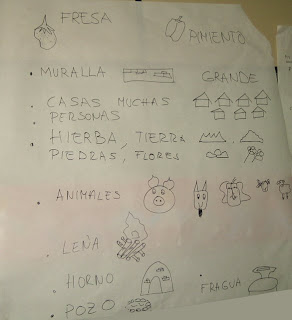 FRESA
PIMIENTO
MURALLA GRANDE
CASAS MUCHAS
PERSONAS
HIERBA, TIERRA
PIEDRAS, FLORES
ANIMALES
LEÑA
HORNO FRAGUA
POZO